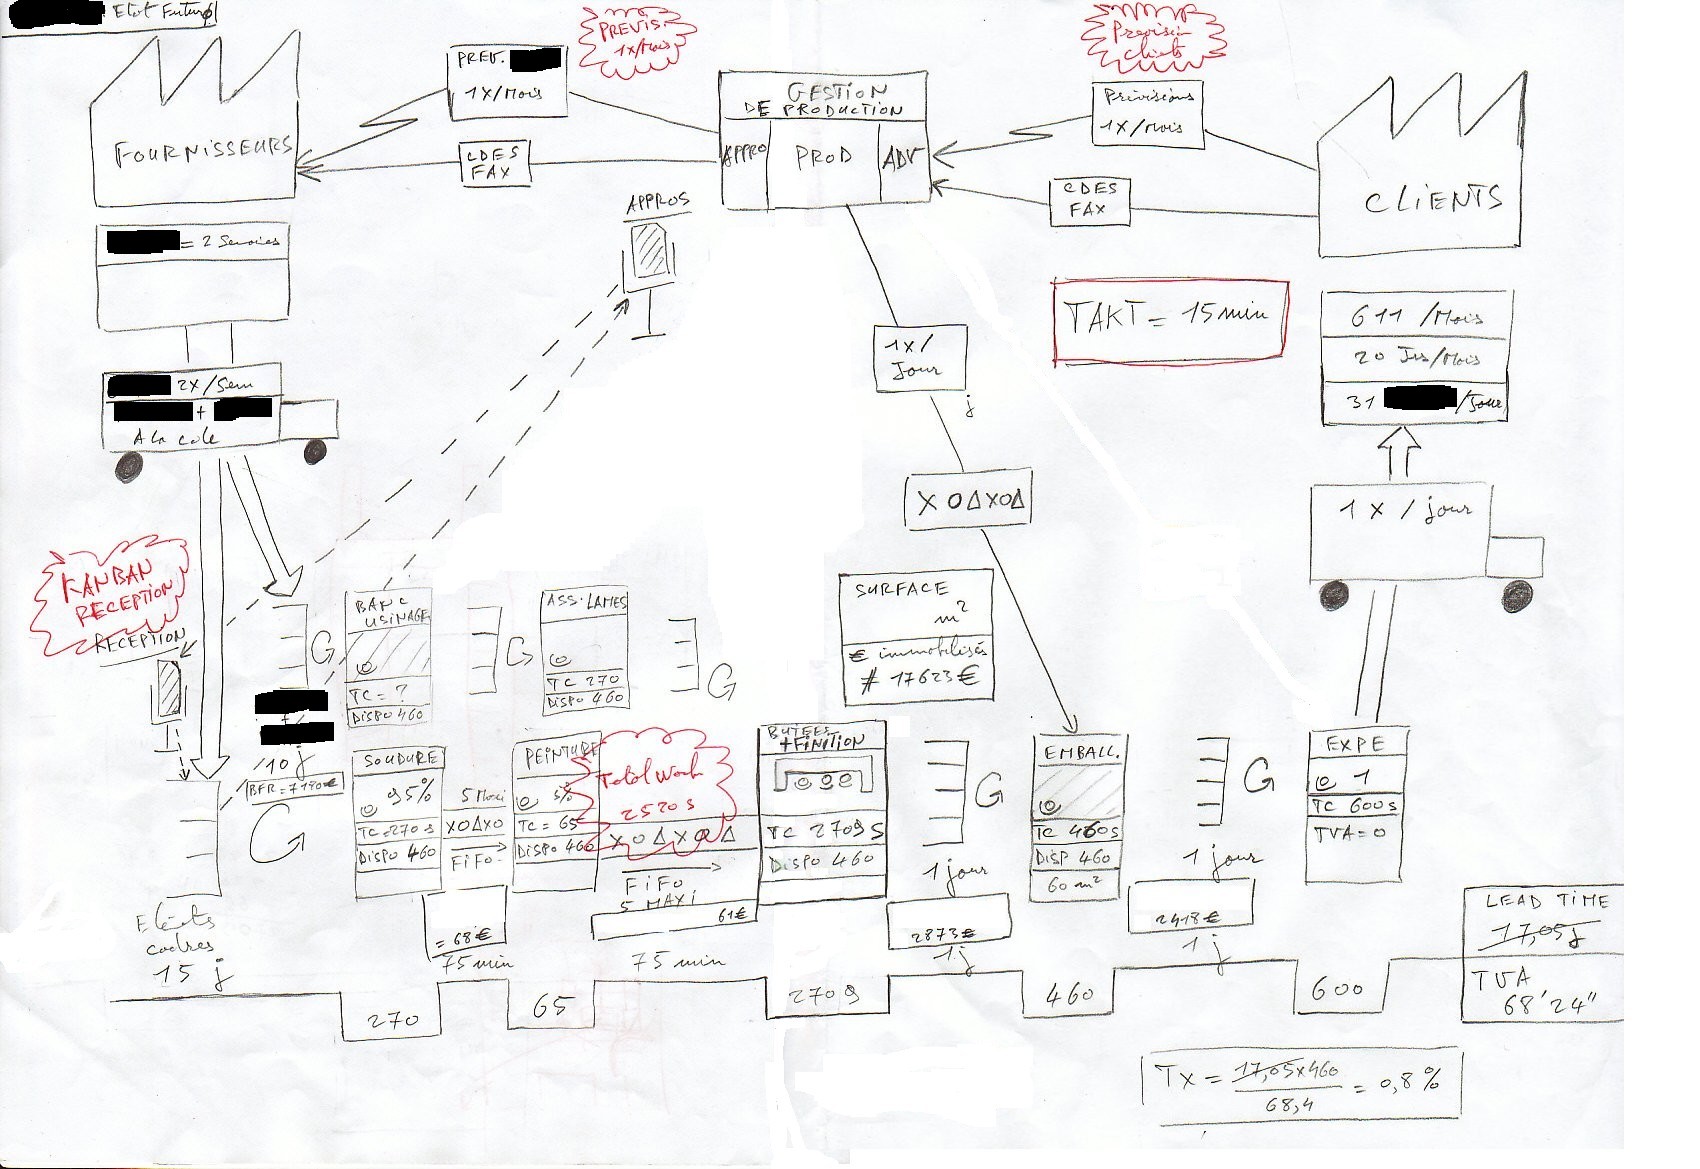 Etat Futur
PREVIS.
1x/Mois
Prévision
clients
PREV.
1X/Mois
GESTION
DE PRODUCTION
APPRO
PROD
ADV
Prévisions
1X/Mois
FOURNISSEURS
CDES
FAX
CDES
FAX
CLIENTS
APPROS
= 2 Semaines
TAKT = 15 min
611 /Mois
20 Jrs/Mois
31 /Jour
1X/
Jour
j
2X/Sem
+
A la cde
X O Δ X O Δ
1 X / jour
KANBAN
RECEPTION
RECEPTION
G
BANC
USINAGE
TC = ?
DISPO 460
G
ASS. LAMES
TC 270
DISPO 460
G
SURFACE
m²
€ immobilisés
# 17623 €
10 j
BFR = 7190€
G
SOUDURE
95%
TC=270 s
DISPO 460
5 Maxi
XOΔXO
FIFO
PEINTURE
5%
TC = 65
DISPO 460
Total Work
2520 s
X O Δ X O Δ
FIFO
5 MAXI
BUTEES
+ FINITION
TC 2709 S
DISPO 460
G
1 jour
EMBALL.
TC 460 s
DISP 460
60 m²
G
1 jour
EXPE
1
TC 600s
TVA = 0
cadres
15 j
= 68 €
75 min
61€
75 min
2873€
1j
2418€
1 j
LEAD TIME
17,05 j
TVA
68'24"
270
65
2709
460
600
TX = 17,05x460
68,4
= 0,8 %